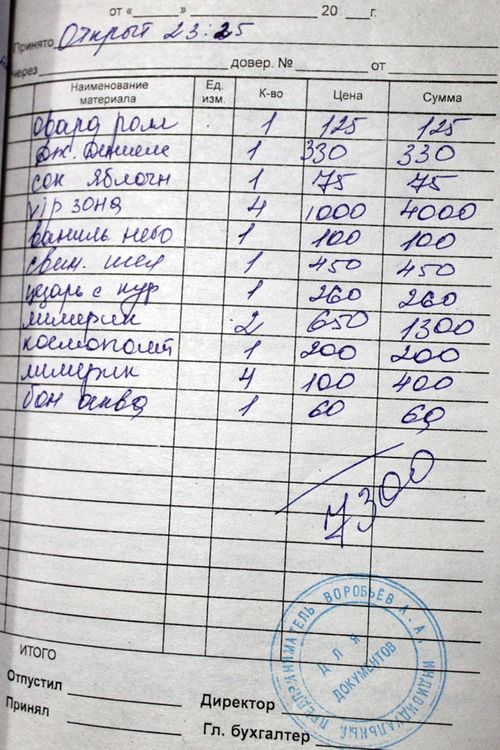 от «____» ____________ 20 ___г.
Принято Открыт 23:25
через ____________ довер. № ________ от ________
Наименование материала Ед. изм. К-во Цена Сумма
ролл 1 125 125
Дж. Дениелс 1 330 330
сок яблочн 1 75 75
vip зона 4 1000 4000
ваниль небо 1 100 100
свин. шея 1 450 450
цезарь с кур 1 260 260
лимерик 2 650 1300
космополит 1 200 200
лимерик 4 100 400
бон аква 1 60 60
7300
ИТОГО
Отпустил
Директор
Принял
Гл. бухгалтер
ИНДИВИДУАЛЬНЫЙ ПРЕДПРИНИМАТЕЛЬ ВОРОБЬЁВ А. А.
ДЛЯ
ДОКУМЕНТОВ